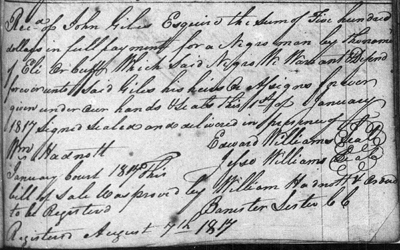 Recd of John Giles Esquire the sum of Five hundred
dollars in full payment for a Negro man by the name
of Eli Orbuff Which Said Negro We Warrant & Defend
forever unto Said Giles his heirs & Assigns forever
given under our hands & Seals this 1st of January
1817 Signed Sealed and delivered in presence of
Wm Hadnott Edward Williams Seal
Jesse Williams Seal
January Court 1817 This
bill of Sale was proved by William Hadnott & Ordred
to be Registerd
Banister Lester CC
Registerd August 7th 1817